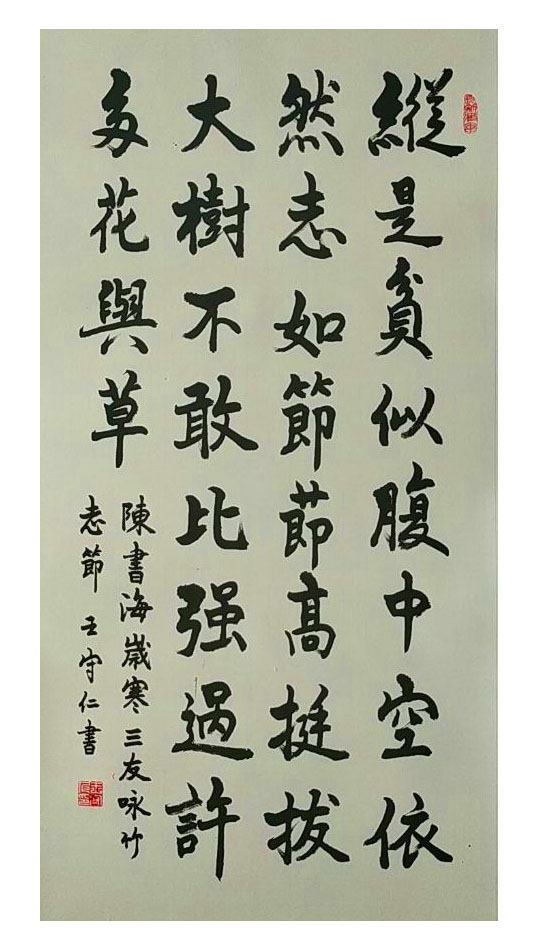 縱是貧似腹中空依
然志如節節高挺拔
大樹不敢比强過許
多花與草
陳書海歲寒三友咏竹
志節 王守仁書